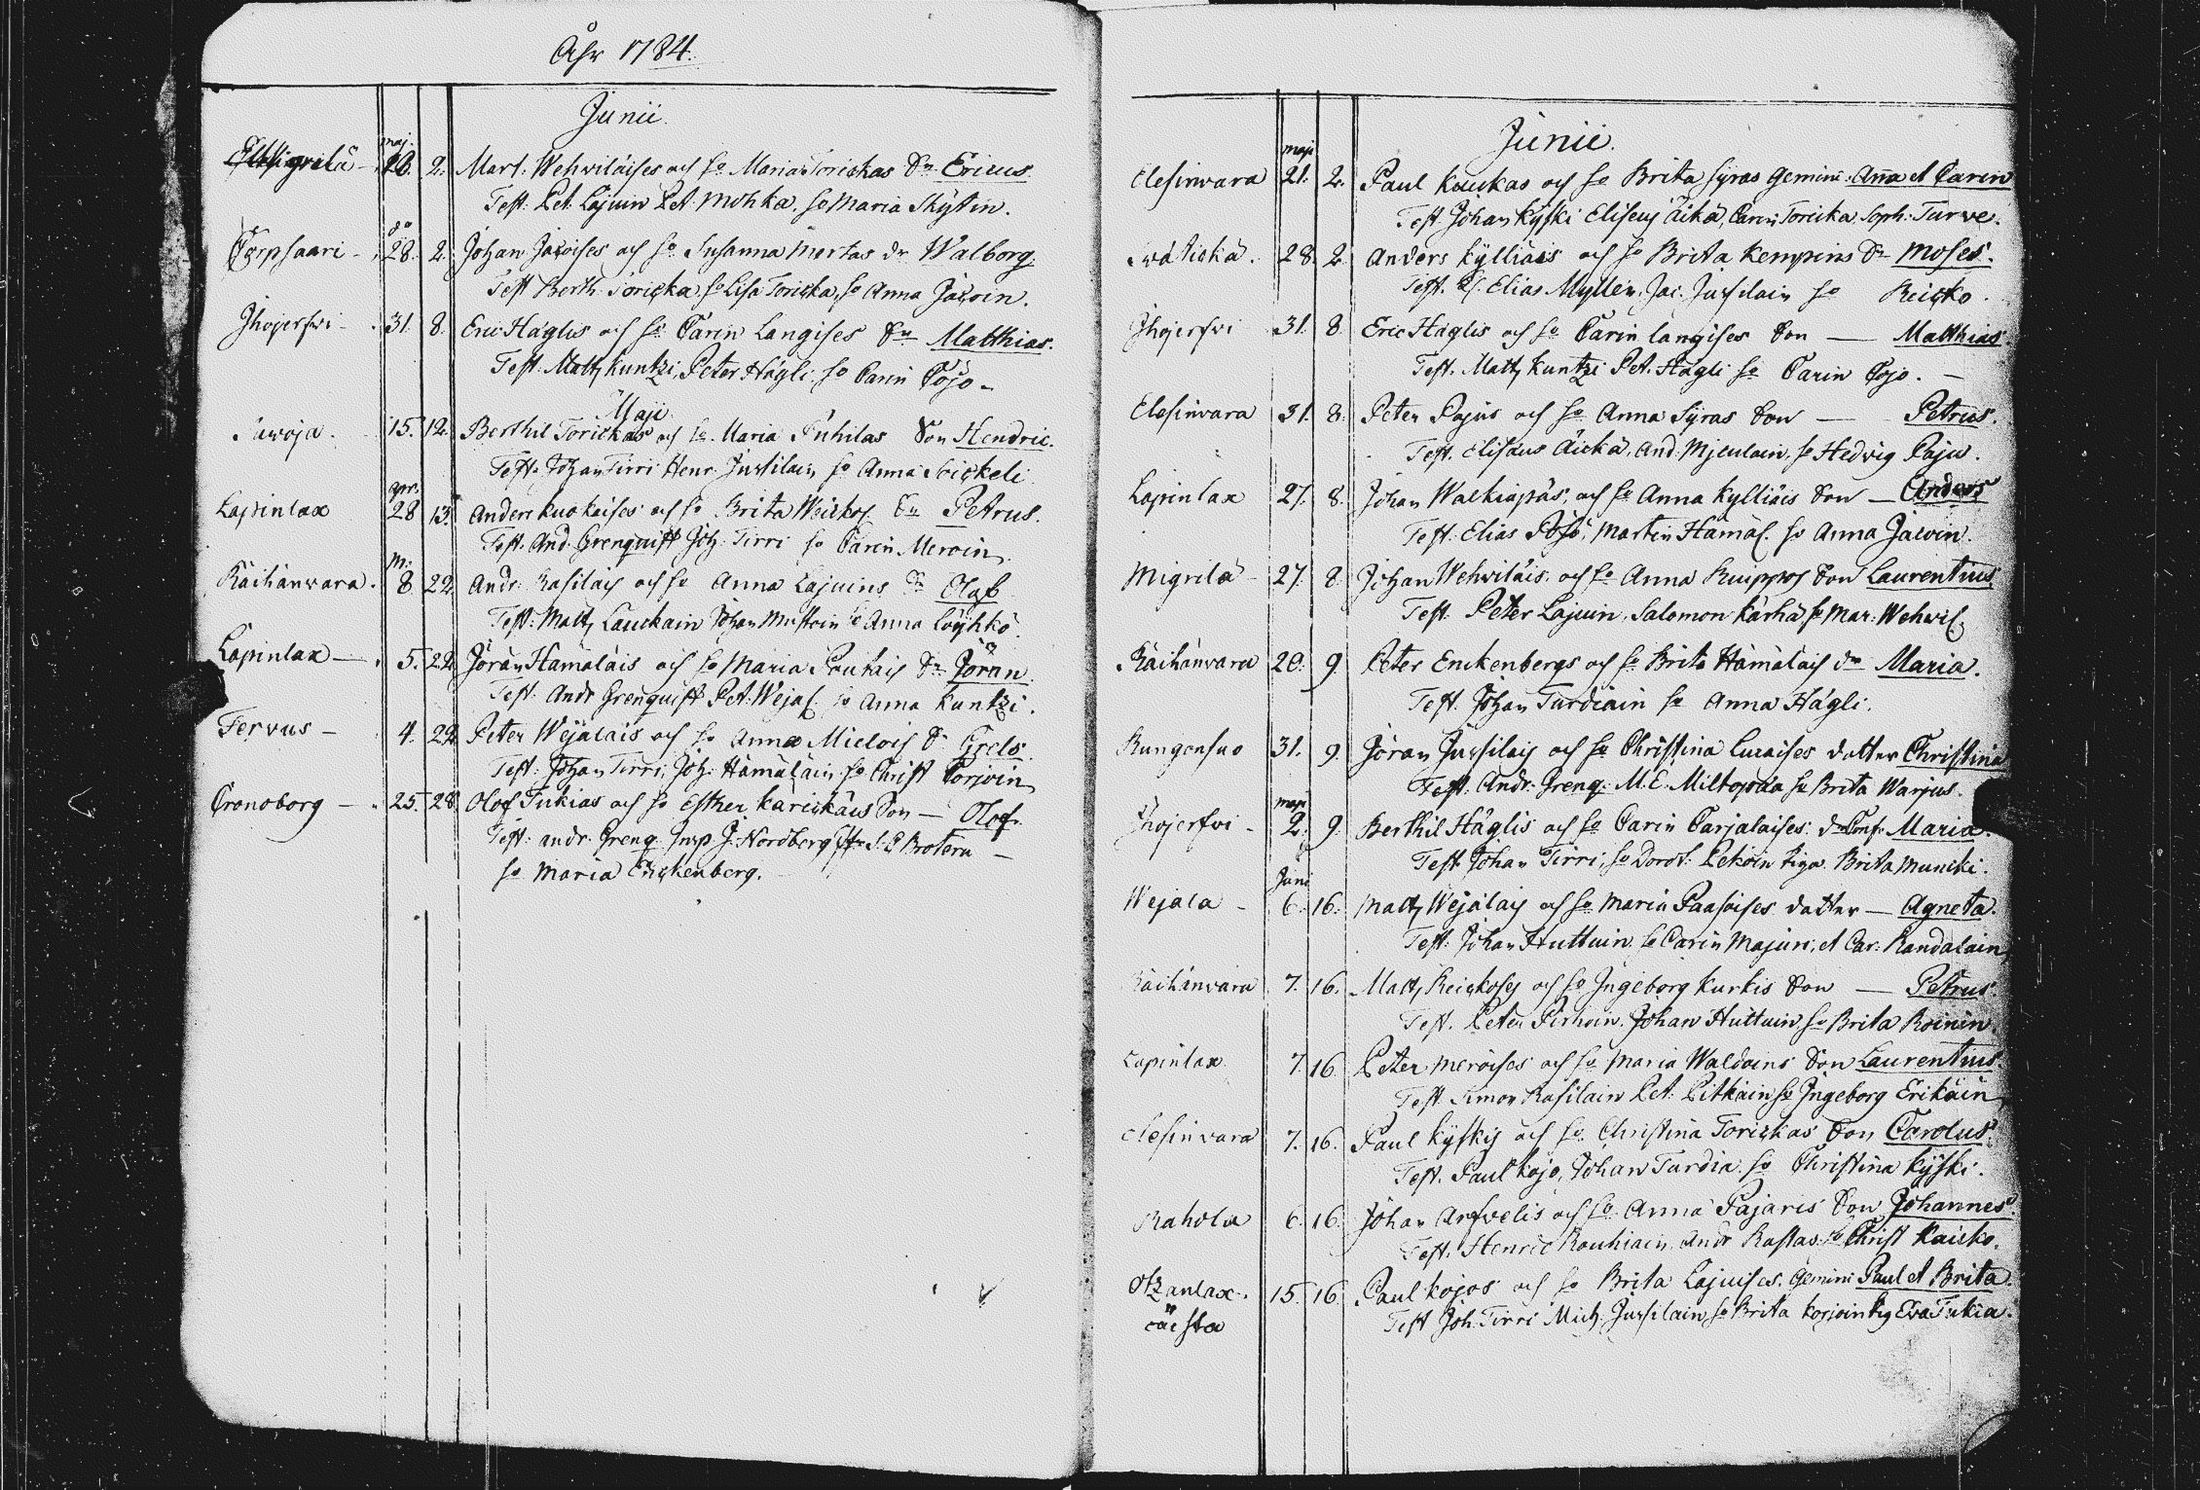 Åhr 1784.
Junii.
maj.
26. 2. Mart. Wehviläises och ho Maria Torickas Sn Ericus
Test. Pet. Lajuin Pet. Mohka. ho Maria Skytin.
do
Torpsaari - 28. 2. Johan Jäwises och ho Susanna Mertas dr Walborg.
Test Berth. Toricka, ho Lisa Toricka, ho Anna
Ihojerfwi - 31. 8. Eric Häglis och ho Carin Langises Sn Matthias.
Test. Matts Kuntzi, Peter Hägli, ho Carin Cojo -
Maji
15. 12. Berthil Torickas och ho Maria Puhilas Son Hendric.
Test. Johan Tirri Henr. Jussilain ho Anna
apr.
Lapinlax 28 13. Anders Kuokaises och ho Brita Sn Petrus.
Test. And. Grenquist Joh. Tirri ho Carin Meroin
M.
Räihänvara. 8 22. Andr. Rasiläis och ho Anna Lajuins Sn Olof
Test: Matts Lauckain Johan Mustoin ho Anna Löyhkö.
Lapinlax - 5. 22. Jöran Hämäläis och ho Maria Sn Jöran.
Test: Andr Grenquist Pet. Wejal. ho Anna Kuntzi.
Fervus - 4. 22. Peter Wejäläis och ho Anna Miclois S. Grels.
Test: Johan Tirri, Joh. Hämäläin ho Christ Corjoin
Cronoborg - 25. 28. Olof Tukias och ho Esther Karickäis Son - Olof.
Test: andr. Grenq. Insp J. Nordberg Brotern -
ho Maria Enckenberg.
Junii.
maji
Elesinwara 21. 2. Paul Kauckas och ho Brita Syras Gemini. Anna et Carin
Test Johan Kyski Eliseus Äikä, Carin Toricka Soph. Turve.
28. 2. Anders Kylliäis och ho Brita Kempins Sn Moses.
Test. Elias Myllin, Jac. Jussilain ho Reicko.
Ihojerfvi 31. 8. Eric Häglis och ho Carin Langises Son - Matthias
Test. Matts Kuntzi Pet. Hägli ho Carin Cojo. -
Elesinvara 31. 8. Peter Pajus och ho Anna Syras Son - Petrus.
Test. Elisäus Äickä, And. ho Hedvig Paju.
Lapinlax 27. 8. Johan Walkiapäs, och ho Anna Kylliäis Son - Anders
Test. Elias Martin Hämäl. ho Anna
Migrilä - 27. 8. Johan Wehviläis och ho Anna Son Laurentius
Test. Peter Lajuin, Salomon Kärhä ho Mar: Wehvil.
Räihänvara 20. 9. Peter Enckenbergs och ho Brita Hämäläis dr Maria.
Test. Johan Turdiain ho Anna Hägli.
31. 9. Jöran Jussilais och ho Christina datter Christina
Test. Andr. Grenq. M. E. Miltopæa ho Brita Warjus.
maji
Ihojerfvi - 2. 9. Berthil Häglis och ho Carin Carjalaises: Maria.
Test. Johan Tirri, ho Dorot. Pekoin Piga. Brita Muncki.
Juni
Wejala - 6. 16. Matts Wejälais och ho Maria Paasoises datter - Agneta.
Test. Johan Huttuin. ho Carin Majuri, et Car: Kandalain
Räihänvara 7. 16. Matts Reickoses och ho Ingeborg Kurkis Son - Petrus.
Test. Peter Pirhoin. Johan Huttuin ho Brita Roinin.
Lapinlax 7. 16 Peter Meroises och ho Maria Waldoins Son Laurentius.
Test. Simon Rasilain Pet. Pitkäin ho Ingeborg Erikäin
Elesinvara 7. 16. Paul Kyskis och ho Christina Torickas Son Carolus.
Test. Paul Kojo, Johan Turdia. ho Christina Kyski.
Rahola 6. 16. Johan Arfvelis och ho Anna Pajaris Son Johannes.
Test. Henric Rouhiain. Andr Rastas. ho Christ Kaicko.
Otzanlax. 15. 16 Paul Kojos och ho Brita Lajuises. Gemini Paul et Brita.
Test Joh. Tirri Mich. Jussilain ho Brita Korjoin Pig Eva Tukia.